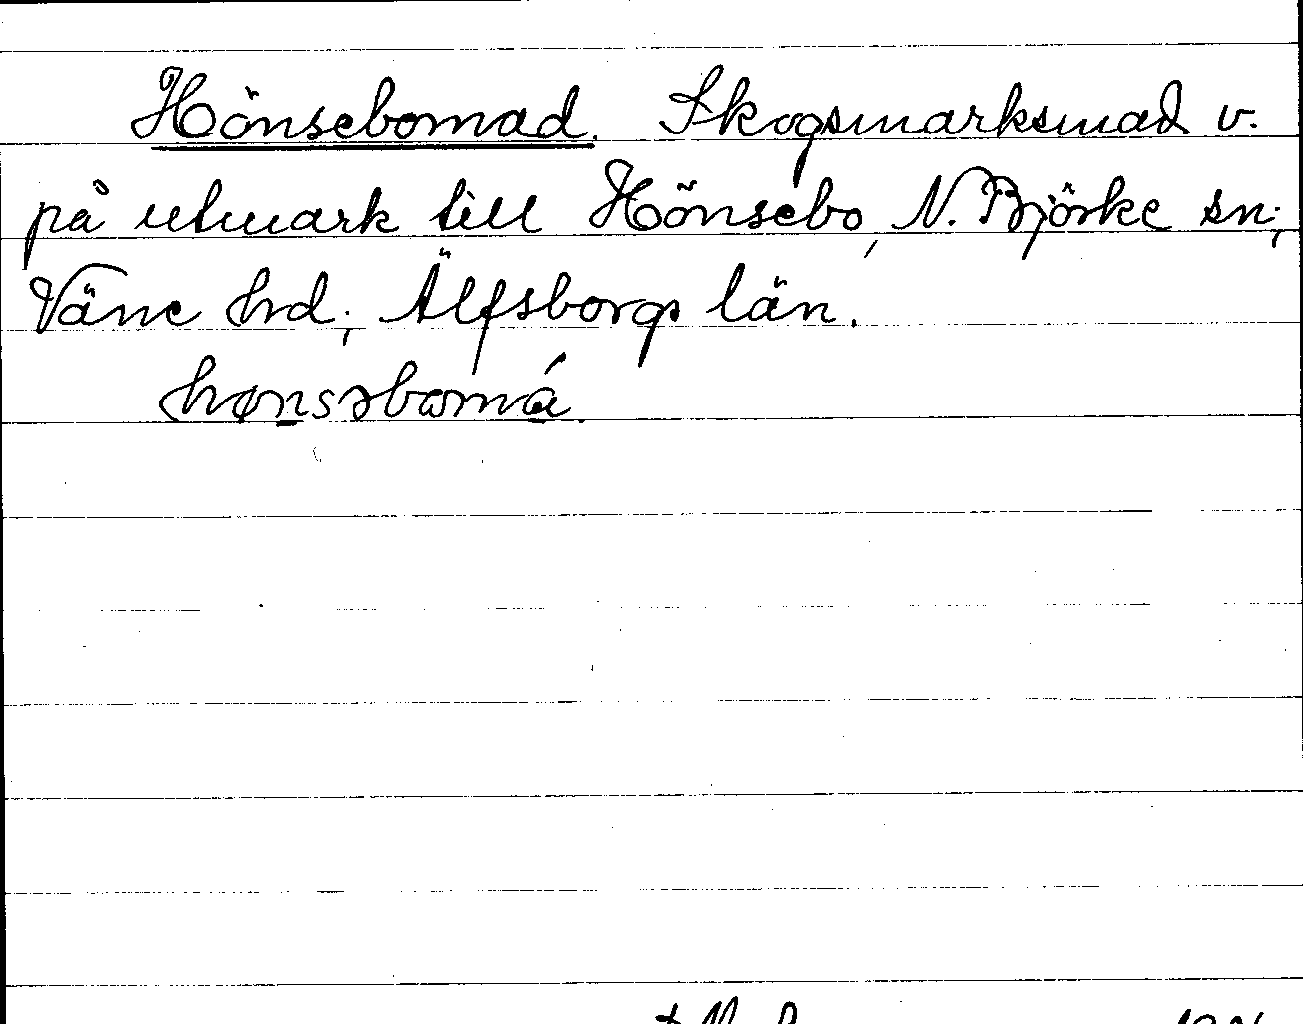 Hönsebomad. Skogsmarksmad v.
på utmark till Hönsebo, N. Björke sn;
Väne hd; Älfsborgs län.
hønsəbomá.